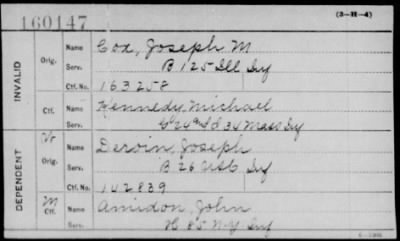 160147
(3-H-4)
INVALID
Orig.
Name Cox, Joseph M
Serv. B 125 Ill Inf
Ctf. No. 163258
Ctf.
Name Kennedy, Michael
Serv. G 24th & I d 34 Mass Inf
DEPENDENT
Orig.
Name Deroin, Joseph
Serv. B 26 Inf
Ctf. No. 142839
M
Ctf.
Name Amidon, John
Serv. H 85 N-Y Inf